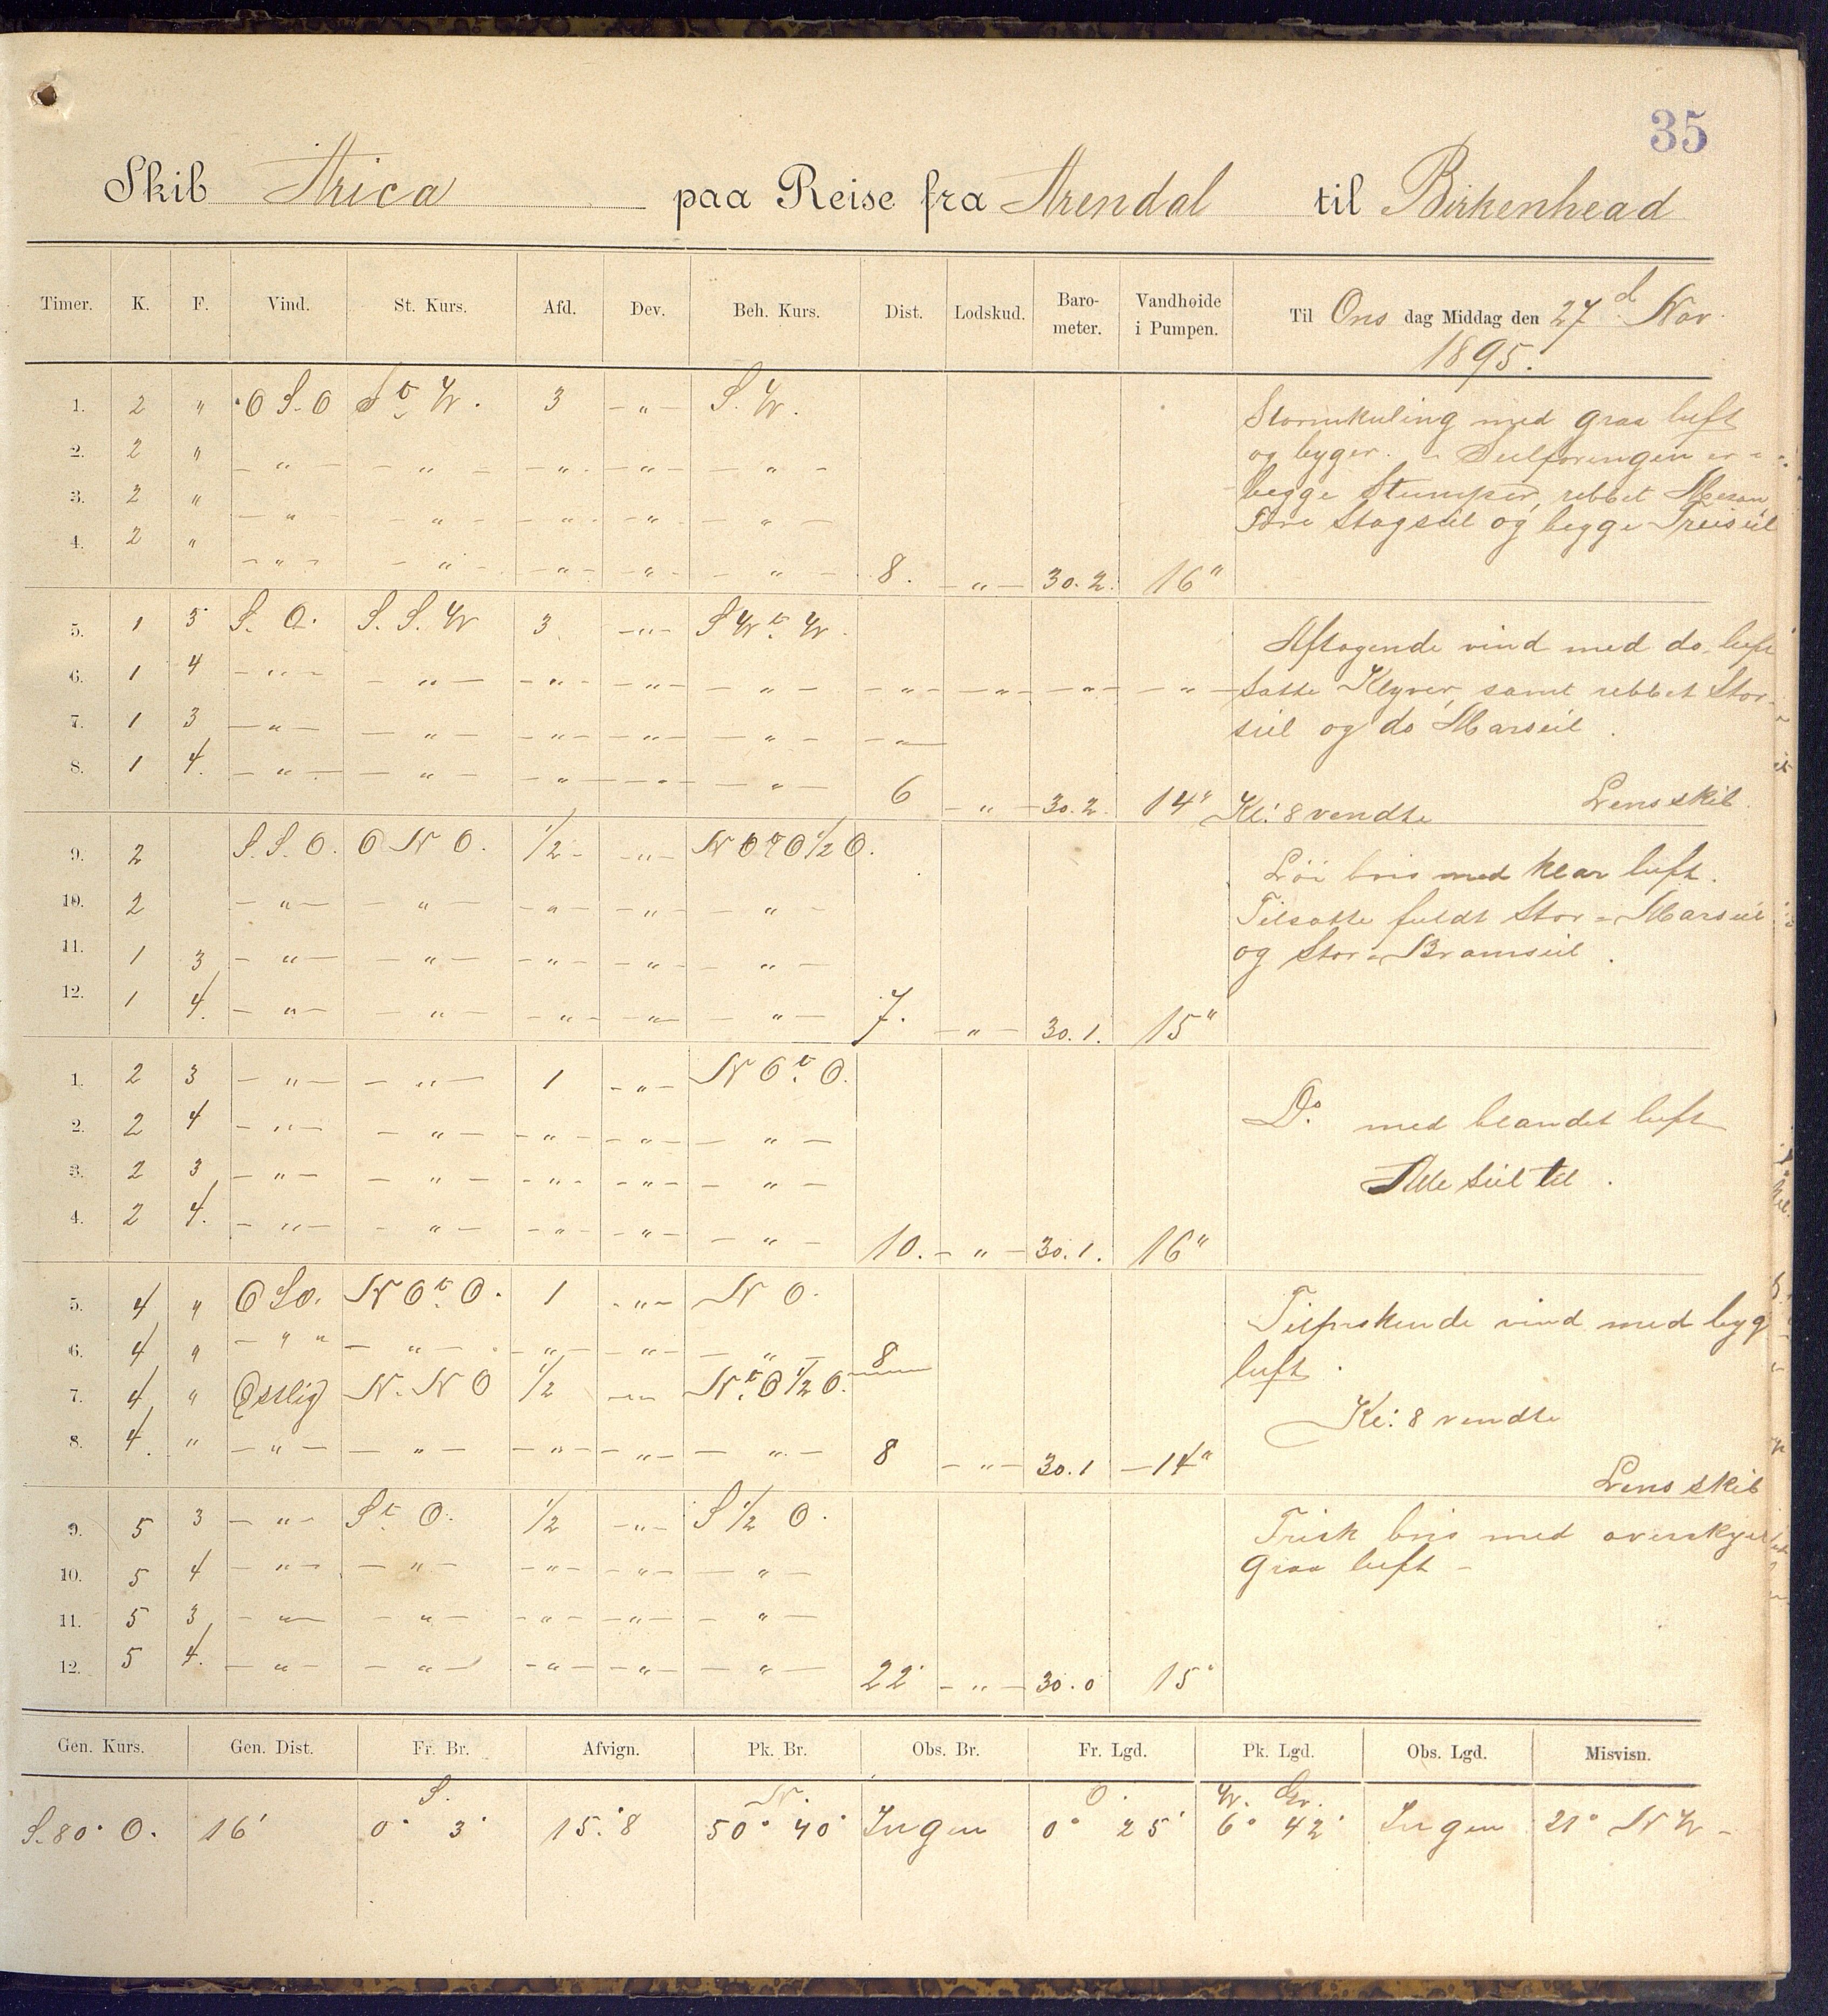 35
Skib Arica paa Reise fra Arendal til Birkenhead
Timer. K. F. Vind. St. Kurs. Afd. Dev. Beh. Kurs. Dist. Lodskud. Baro-meter. Vandhøide i Pumpen. Til Ons dag Middag den 27d Nov.
1895.
1. 2 " O S. O St W. 3 — " — S. W. Stormkuling med graa luft
2. 2 " — " — — " — — " — — " — — " — og byger. - Seilføringen er -
3. 2 " — " — — " — — " — — " — — " — begge Stumper, rebbet Mesan
4. 2 " — " — — " — — " — — " — — " — 8. — " — 30.2. 16" Fore Stagseil og begge Treiseil
5. 1 5 S. O. S. S. W 3 — " — S W t. W. Aftagende vind med do. luft
6. 1 4 — " — — " — — " — — " — — " — — " — — " — — " — — " — Satte Klyver, samt rebbet Stor-
7. 1 3 — " — — " — — " — — " — — " — — " — seil og do Marseil.
8. 1 4. — " — — " — — " — — " — — " — 6 — " — 30.2. 14" Kl: 8 vendte Lens skib.
9. 2 S. S. O. O N O. 1/2 — " — N O t O 1/2 O. Løi bris med klar luft.
10. 2 — " — — " — — " — — " — — " — Tilsatte fuldt Stor-Marseil
11. 1 3 — " — — " — — " — — " — — " — og Stor-Bramseil.
12. 1 4. — " — — " — — " — — " — — " — 7. — " — 30.1. 15"
1. 2 3 — " — — " — 1 — " — N O t. O.
2. 2 4 — " — — " — — " — — " — — " — Do. med blandet luft
3. 2 3 — " — — " — — " — — " — — " — Alle seil til.
4. 2 4. — " — — " — — " — — " — — " — 10. — " — 30.1. 16"
5. 4 " O SO. N O t. O. 1 — " — N O. Tilfriskende vind med byg
6. 4 " — " " — " — — " — — " — — " — 8 luft.
7. 4 " Østlig N. N O 1/2 — " — N. t O 1/2 O. Kl: 8 vendte
8. 4. " — " — — " — — " — — " — — " — 8 — " — 30.1 — 14"
Lens skib
9. 5 3 — " — S t. O. 1/2 — " — S 1/2 O. Frisk bris med overskyet
10. 5 4 — " — — " — — " — — " — — " — graa luft -
11. 5 3 — " — — " — — " — — " — — " —
12. 5 4. — " — — " — — " — — " — — " — 22 — " — 30.0 15"
Gen. Kurs. Gen. Dist. Fr. Br. Afvign. Pk. Br. Obs. Br. Fr. Lgd. Pk. Lgd. Obs. Lgd. Misvisn.
S. N. O. W. Gr.
S. 80° O. 16' 0° 3' 15.'8 50° 40' Ingen 0° 25' 6° 42' Ingen 21° N W -